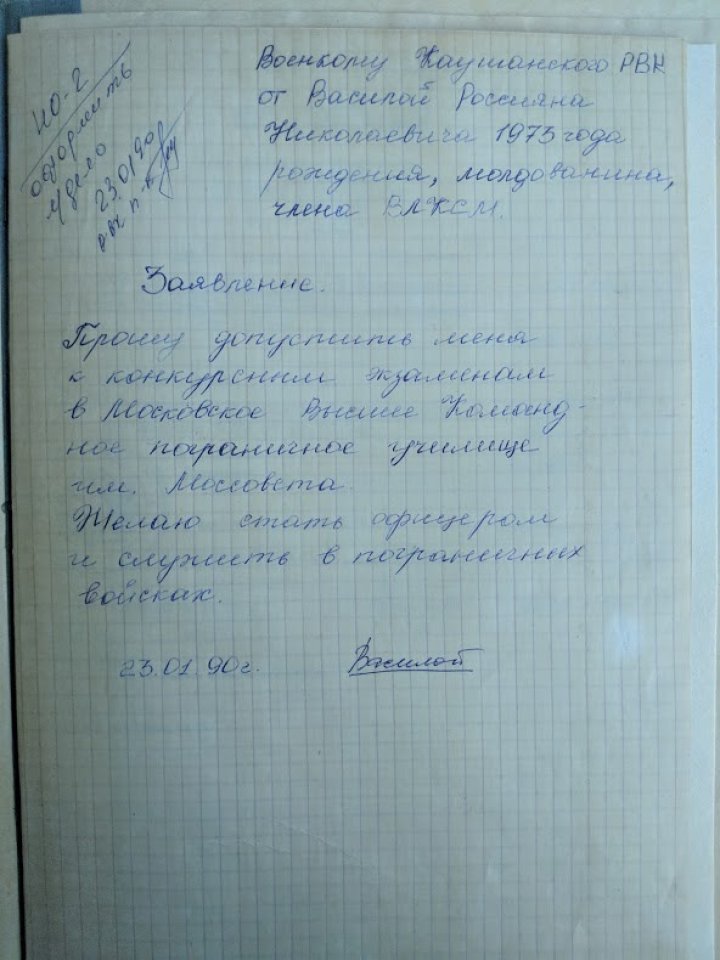 НО-2
оформить
уч дело
23.01.90г
Военкому Каушанского РВК
от Василой Россияна
Николаевича 1973 года
рождения, молдованина,
члена ВЛКСМ.
Заявление.
Прошу допустить меня
к конкурсным экзаменам
в Московское Высшее Команд-
ное пограничное училище
им. Моссовета.
Желаю стать офицером
и служить в пограничных
войсках.
23.01.90г. Василой